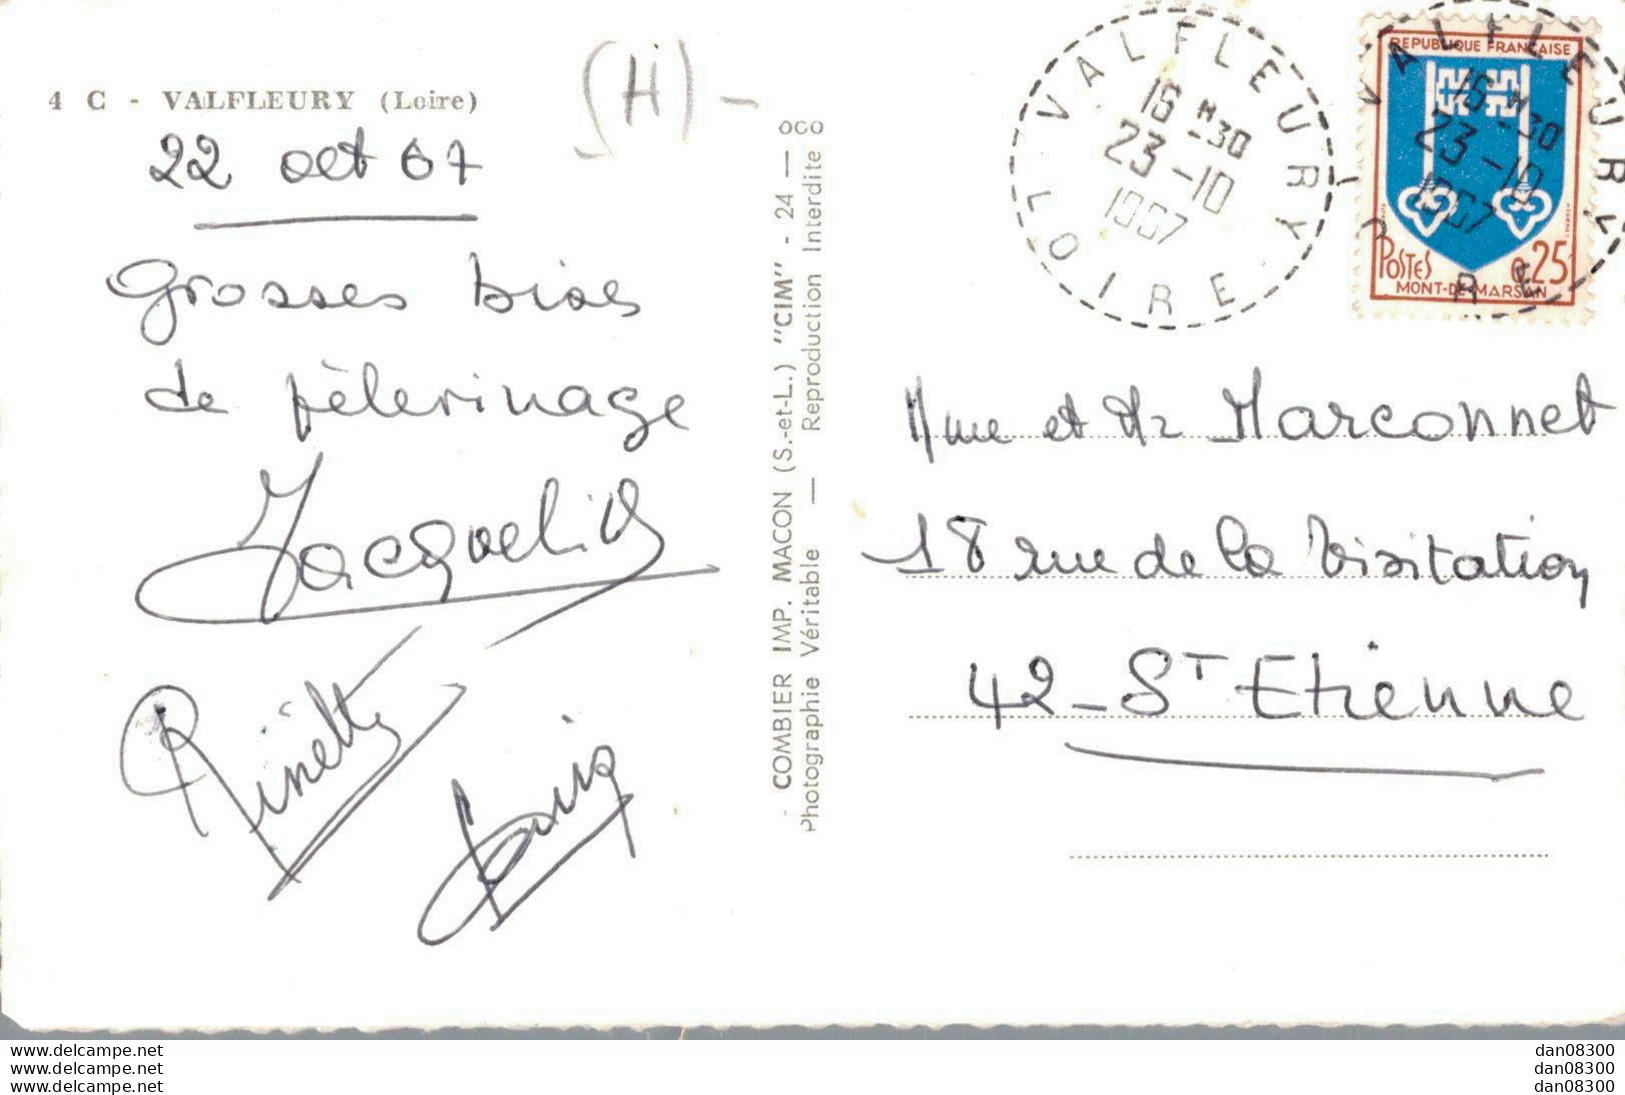 4 C - VALFLEURY (Loire)
22 oct 67
Grosses bises
de pèlerinage
Jacqueline
Rinette
(H) -
COMBIER IMP. MACON (S.-et-L.) "CIM" - 24 — OCO
Photographie Véritable — Reproduction Interdite
VALFLEURY
LOIRE
16 H 30
23 -10
1967
REPUBLIQUE FRANCAISE
POSTES 0,25
MONT-DE-MARSAN
VALFLEURY
16 H -30
23 -10
1967
Mme et Mr Marconnet
18 rue de la Visitation
42 - ST Etienne
www.delcampe.net
www.delcampe.net
www.delcampe.net
dan08300
dan08300
dan08300